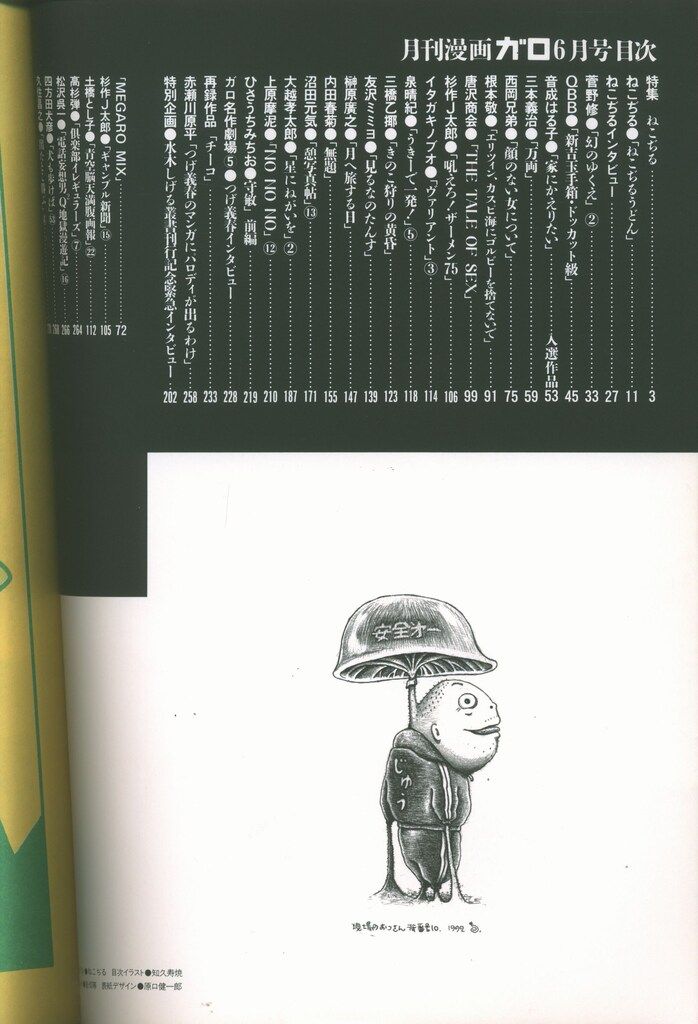 月刊漫画ガロ6月号目次
特集 ねこぢる 3
ねこぢる●「ねこぢるうどん」 11
ねこぢるインタビュー 27
菅野修●「幻のゆくえ」② 33
QBB●「新吉玉手箱・トンカット級」 45
音成はる子●「家にかえりたい」 入選作品 53
三本義治●「万両」 59
西岡兄弟●「顔のない女について」 75
根本敬●「エリツィン、カスピ海にゴルビーを捨てないで」 91
唐沢商会●「THE TALE OF SEX」 99
杉作J太郎●「吼えろ!ザーメン75」 106
イタガキノブオ●「ヴァリアント」③ 114
泉晴紀●「うきしー一発!」⑤ 118
三橋乙揶●「きのこ狩りの黄昏」 123
友沢ミミヨ●「見るなのたんす」 139
榊原廣之●「月へ旅する日」 147
内田春菊●「無題」 155
沼田元気●「憩写真帖」⑬ 171
大越孝太郎●「星にねがいを」② 187
上原摩泥●「NO NO NO」⑫ 210
ひさうちみちお●「守敏」前編 219
ガロ名作劇場5●つげ義春インタビュー 228
再録作品 「チーコ」 233
赤瀬川原平「つげ義春のマンガにパロディが出るわけ」 258
特別企画●水木しげる叢書刊行記念緊急インタビュー 202
「MEGARO MIX」 72
杉作J太郎●「ギャンブル新聞」⑮ 105
土橋とし子●「青空脳天満腹画報」㉒ 112
高杉弾●「倶楽部イレギュラーズ」⑦ 264
松沢呉一●「電話妄想男Q・地獄漫遊記」⑯ 266
四方田犬彦●「犬も歩けば」 268
安全第一
じゅう
現場のおっさん 1992
●ねこぢる 目次イラスト●知久寿焼
表紙デザイン●原口健一郎